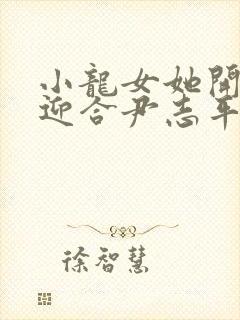 小龍女她開
迎合尹志平
徐智慧